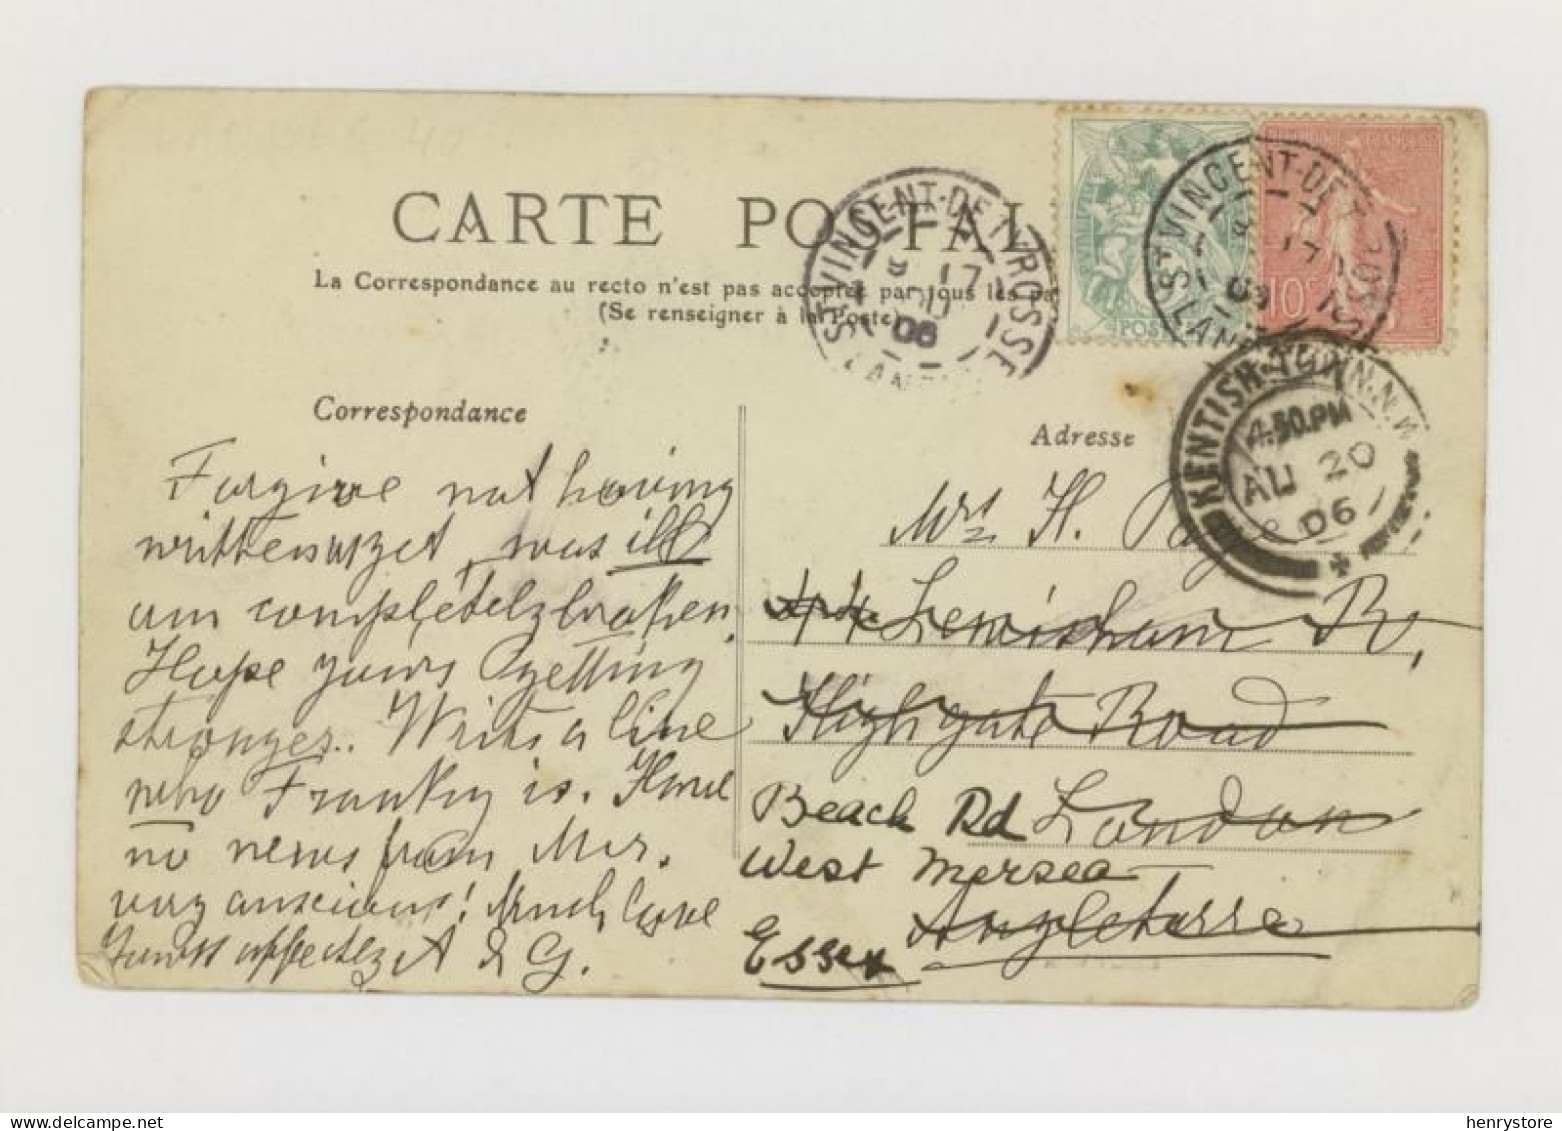 CARTE POSTALE
La Correspondance au recto n'est pas acceptée par tous les pa
(Se renseigner à la Poste)
ST VINCENT-DE-TYROSSE
17
06
LANDES
ST VINCENT-DE-T ROSSE
17
LAND
10c
POSTE
KENTISH-TOWN.N.W
4.30.PM
AU 20
06
Correspondance
Forgive not having
written yet, was ill
am completely broken.
Hope yours getting
stronger.. Write a line
who Franky is. Have
no news from Mer.
very anxious! Much love
Yours affectely A & G.
Adresse
Mrs H.
44 Lewisham Rd,
Highgate Road
Beach Rd London
West Mersea
Angleterre
Essex
henrystore